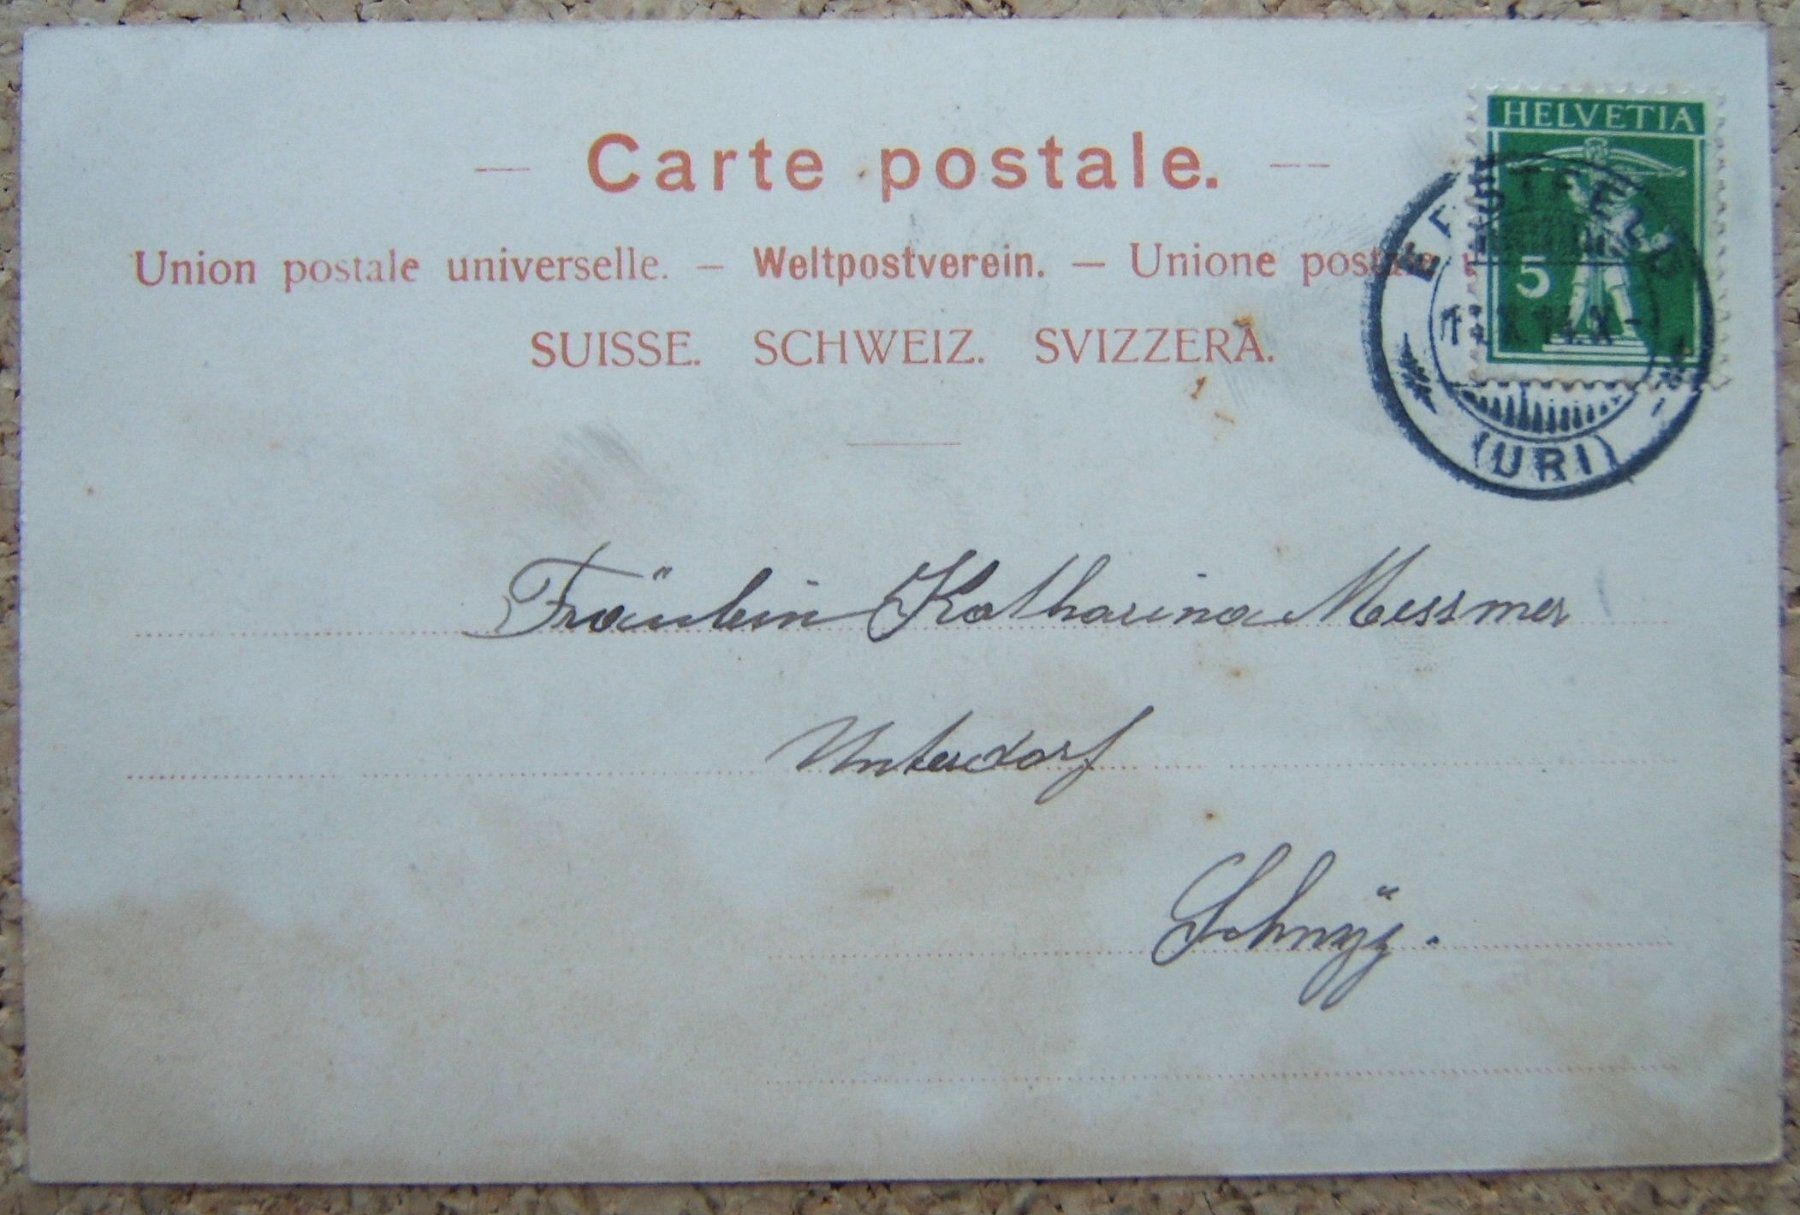 HELVETIA
Carte postale.
Union postale universelle. – Weltpostverein. – Unione postale
SUISSE. SCHWEIZ. SVIZZERA.
5
ERSTFELD
(URI)
Fräulein Katharina Messmer
Unterdorf